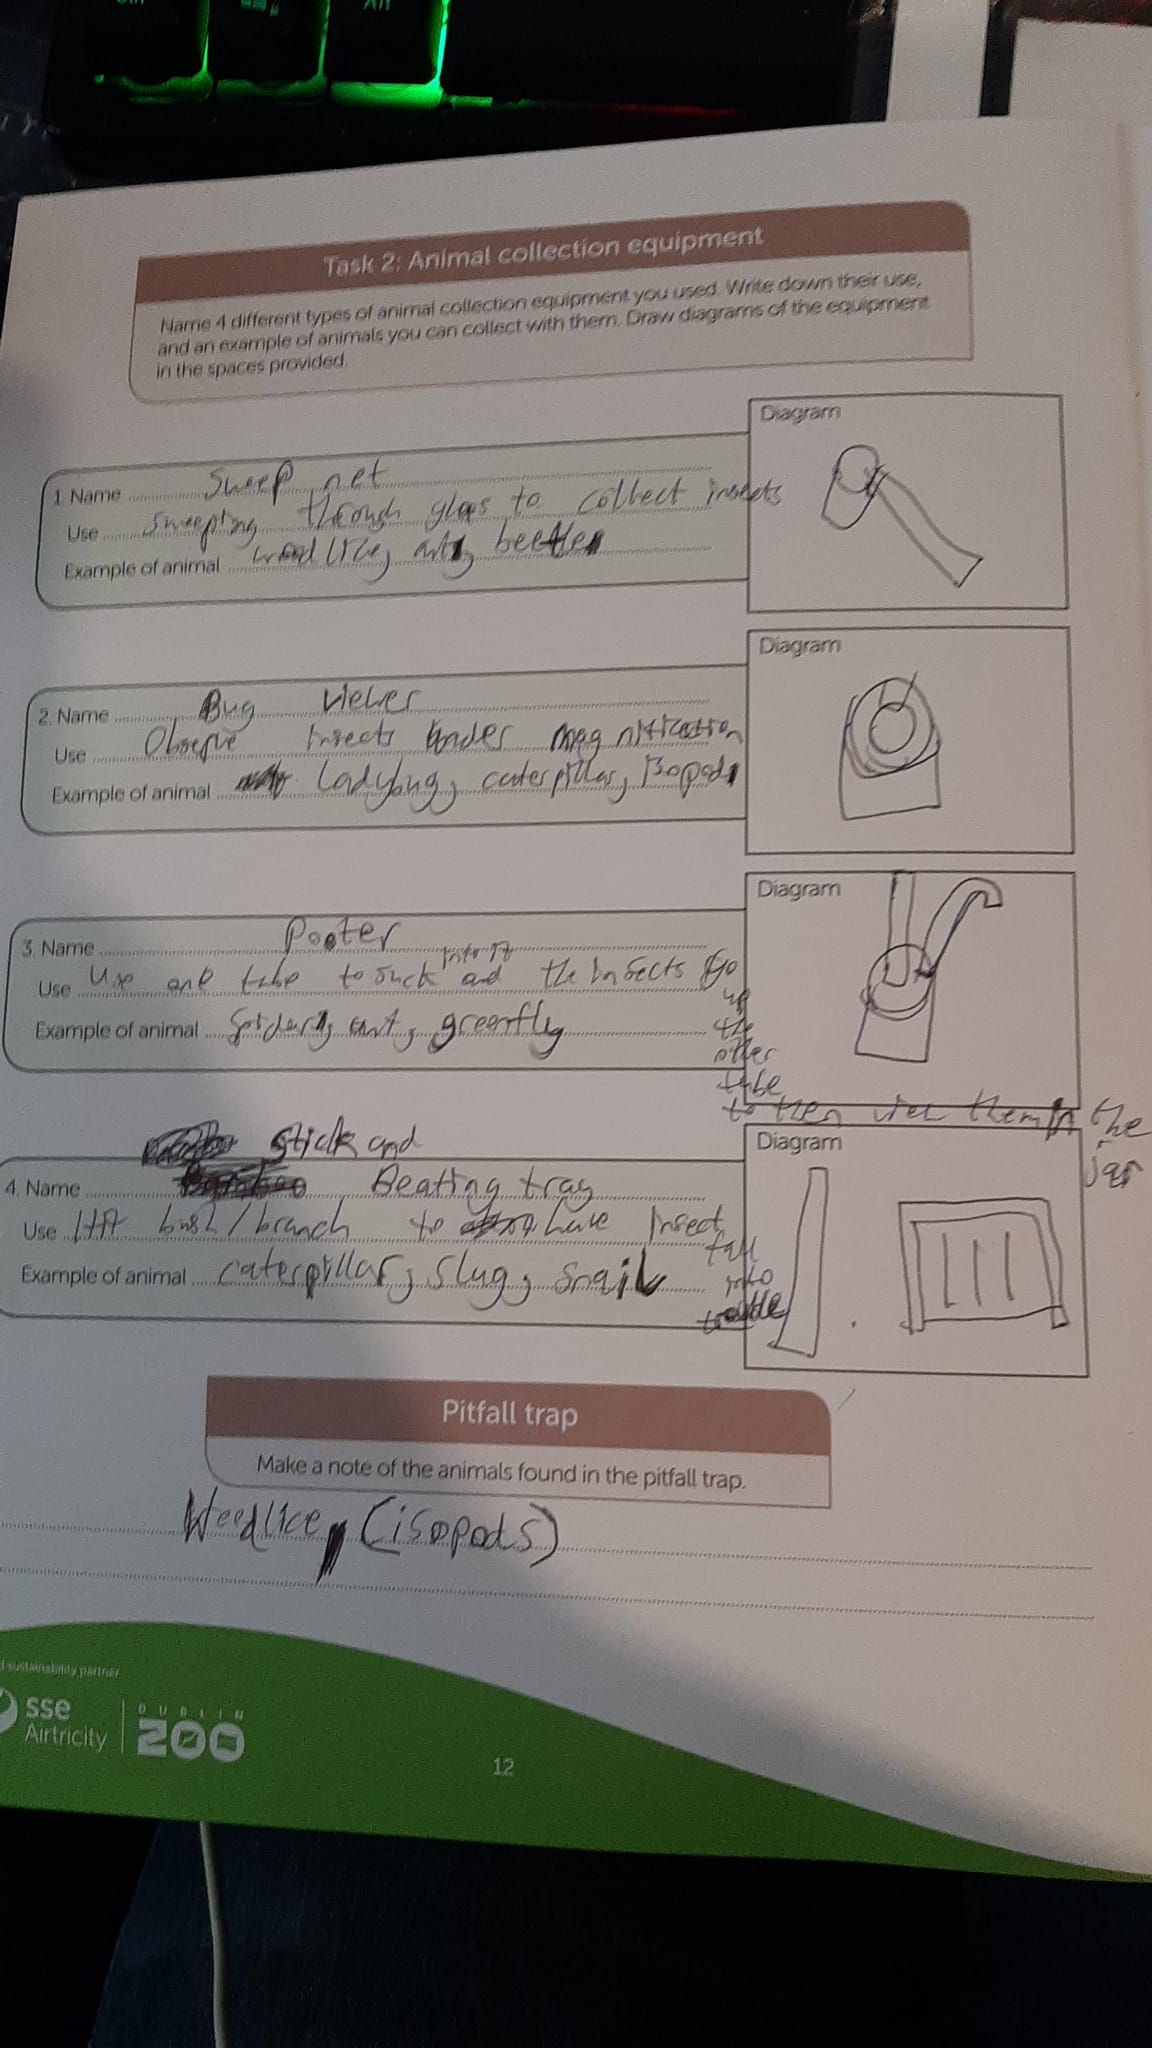 Alt
Task 2: Animal collection equipment
Name 4 different types of animal collection equipment you used. Write down their use,
and an example of animals you can collect with them. Draw diagrams of the equipment
in the spaces provided.
Diagram
1. Name Sweep net
Use Sweeping through to collect insects
Example of animal woodlice, ant, beetle
Diagram
2. Name Bug
Use Observe insects under magnification
Example of animal Ladybug, caterpillar, Isopods
Diagram
3. Name Pooter
into it
Use Use one tube to suck and the insects go
up
the
other
tube
to then view them in the
jar
Example of animal Spider, ant, greenfly
Diagram
Stick and
4. Name Beating tray
Use Hit bush/branch to have insect
fall
into
Example of animal caterpillar, slug, snail
Pitfall trap
Make a note of the animals found in the pitfall trap.
(isopods)
sustainability partner
sse
Airtricity
DUBLIN
ZOO
12